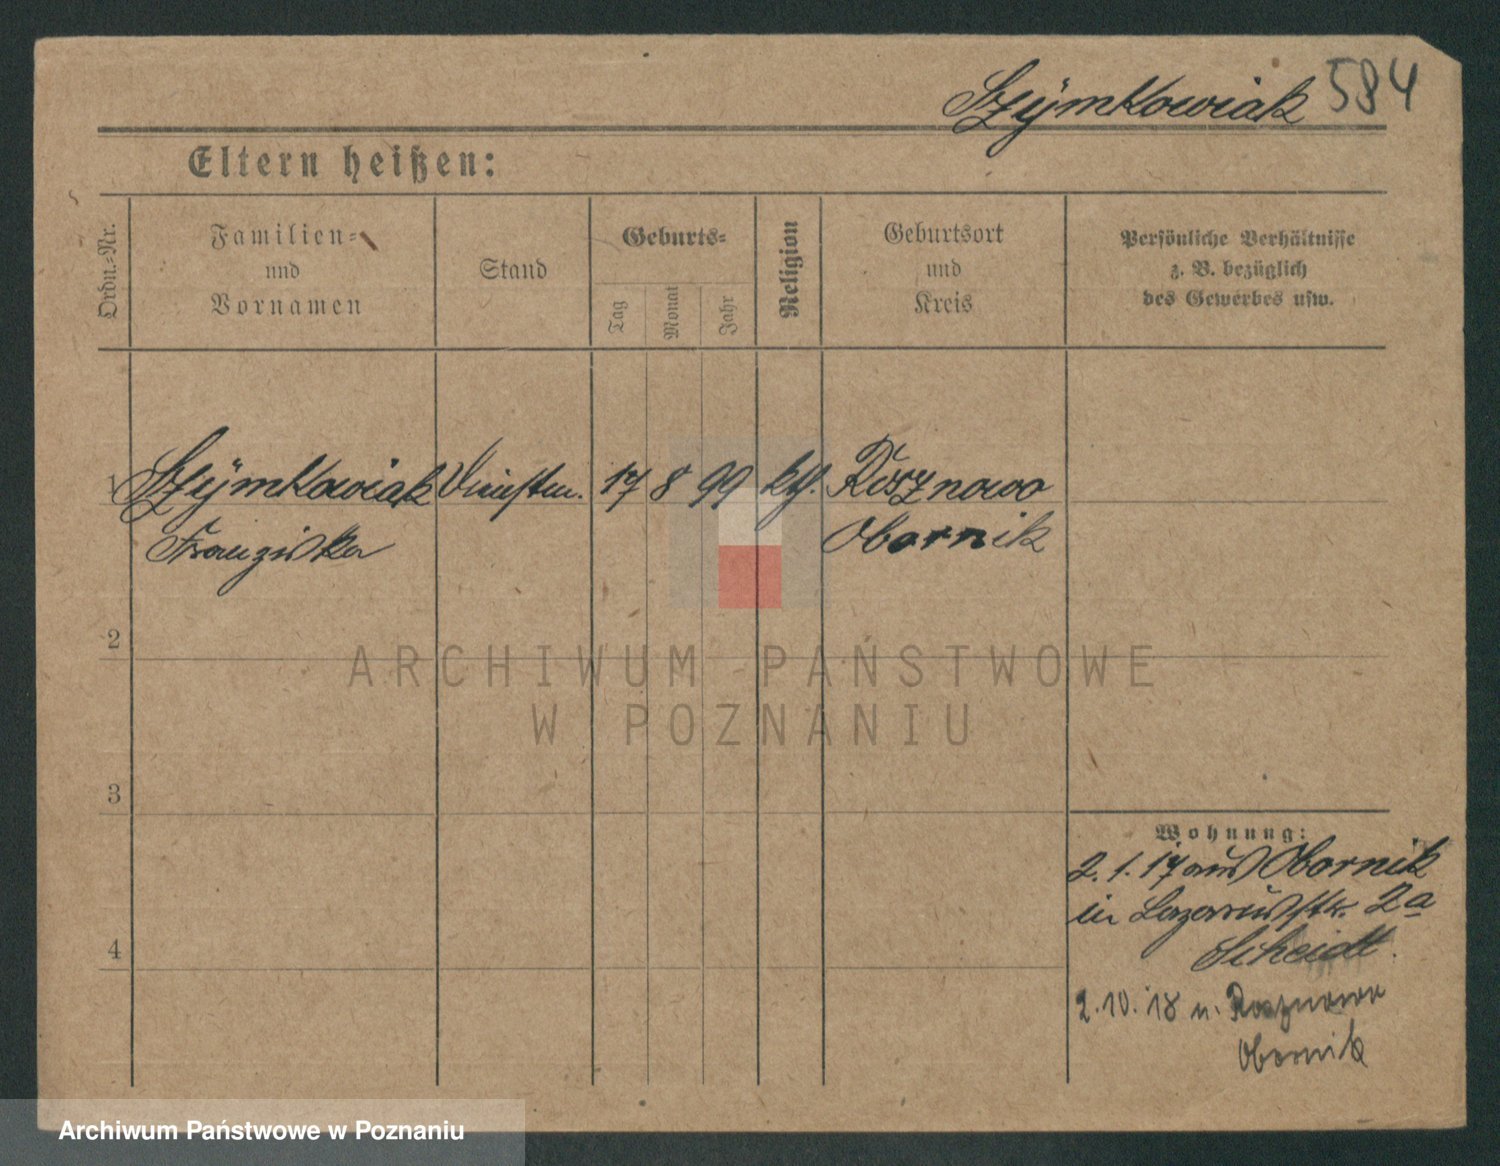 Szÿmkowiak 584
Eltern heißen:
Ordn.-Nr.
Familien-
und
Vornamen
Stand
Geburts-
Tag
Monat
Jahr
Religion
Geburtsort
und
Kreis
Persönliche Verhältnisse
z. B. bezüglich
des Gewerbes usw.
1 Szÿmkowiak 17 8 99 kth. Rosznowo
Franziska Obornik
2
3
4
Wohnung:
2. 1. 17 aus Obornik
in Lazarusstr. 2a
Scheidt.
2. 10. 18 n. Rosznowo
Obornik
ARCHIWUM PAŃSTWOWE
W POZNANIU
Archiwum Państwowe w Poznaniu